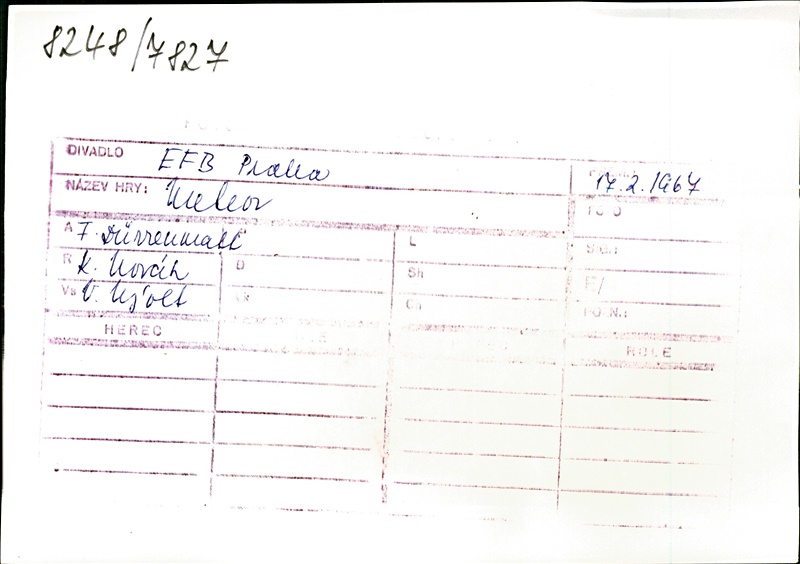 8248/7827
DIVADLO EFB Praha 17.2.1967
NÁZEV HRY: Meteor
A F. Dürrenmatt L
R K. Novák D Sh F/
Vs V. Nývlt Ch
HEREC ROLE